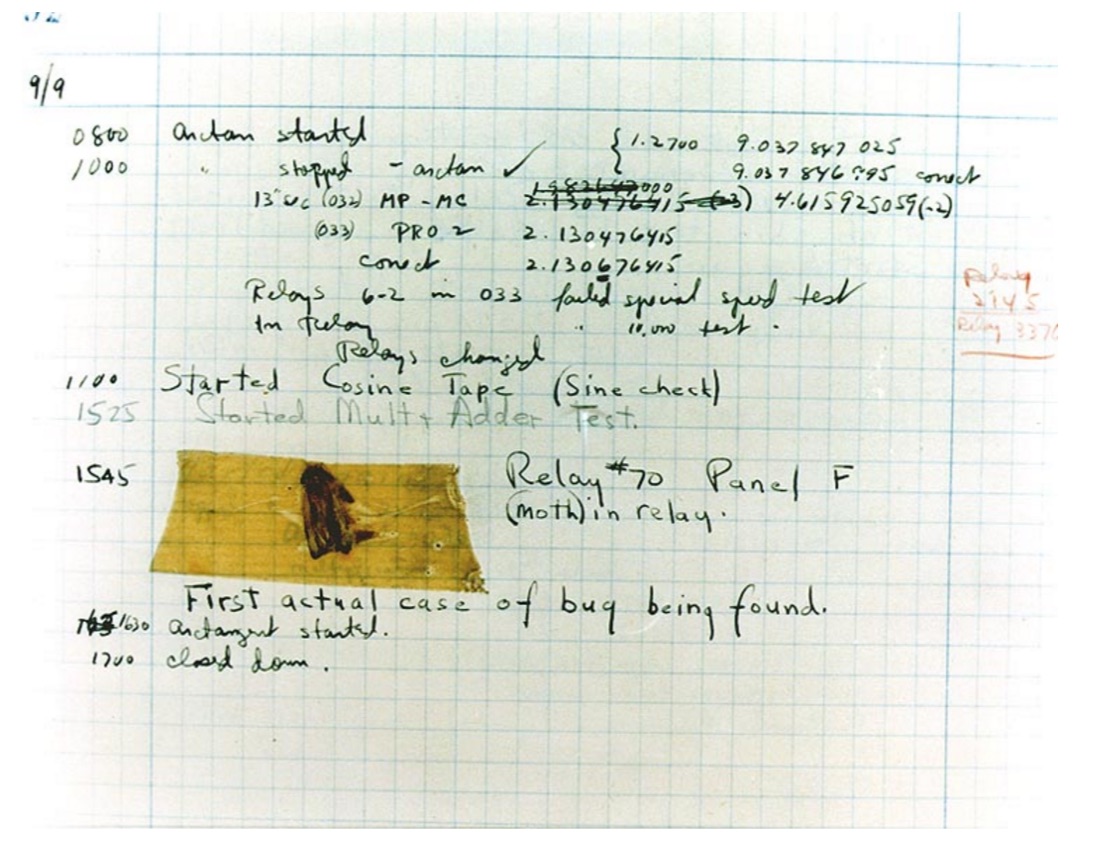 9/9
0800 arctan started { 1.2700 9.037 847 025
1000 " stopped - arctan ✓ 9.037 846 995 correct
13"uc (032) MP - MC 2.130476415 (-3) 4.615925059(-2)
(033) PRO 2 2.130476415
correct 2.130676415
Relays 6-2 in 033 failed special speed test
In relay " 10,000 test .
Relays changed
Relay
2145
Relay 3370
1100 Started Cosine Tape (Sine check)
1525 Started Mult + Adder Test.
1545 Relay #70 Panel F
(moth) in relay.
First actual case of bug being found.
1630 arctangent started.
1700 closed down .